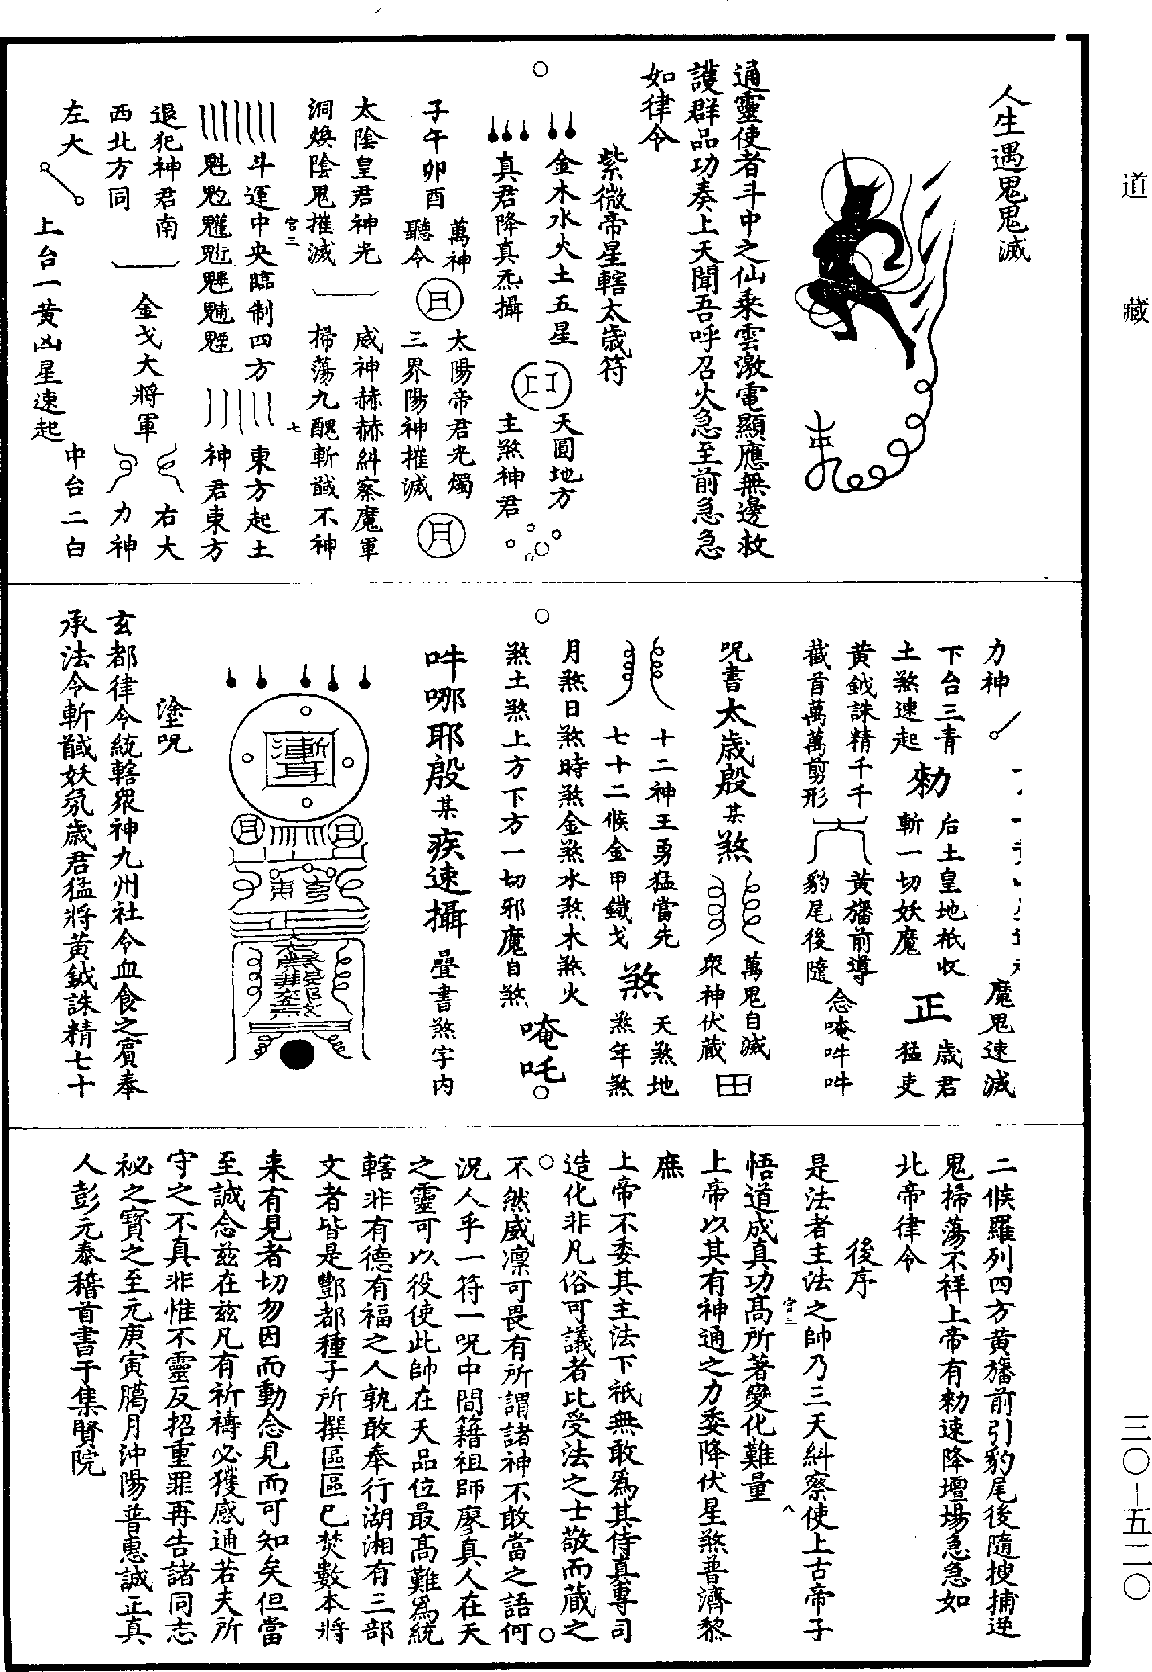 道藏
三〇-五二〇
人生遇鬼鬼滅
通靈使者斗中之仙乘雲激電顯應無邊救
護群品功奏上天聞吾呼召火急至前急急
如律令
紫微帝星轄太歲符
金木水火土五星
天圓地方
真君降真炁攝
主煞神君
子午卯酉
萬神
聽令
太陽帝君光燭
三界陽神摧滅
太陰皇君神光
威神赫赫糾察魔軍
洞煥陰鬼摧滅
掃蕩九醜斬馘不神
斗運中央臨制四方
東方起土
魁𩲃魓䰢魒
神君東方
退犯神君南
西北方同
金戈大將軍
右大
力神
左大
上台一黃凶星速起
中台二白
力神
魔鬼速滅
下台三青
土煞速起
勑
后土皇地祇收
斬一切妖魔
正
歲君
猛吏
黃鉞誅精千千
截首萬萬剪形
黃旛前導
豹尾後隨
念唵吽吽
呪書太歲殷某煞
萬鬼自滅
眾神伏藏
十二神王勇猛當先
七十二候金甲鐵戈
煞
天煞地
煞年煞
月煞日煞時煞金煞水煞木煞火
煞土煞上方下方一切邪魔自煞
唵吒
吽哪耶殷某疾速攝
疊書煞字內
塗呪
玄都律令統轄眾神九州社令血食之賓奉
承法令斬馘妖氛歲君猛將黃鉞誅精七十
二候羅列四方黃旛前引豹尾後隨搜捕逆
鬼掃蕩不祥上帝有勑速降壇場急急如
北帝律令
後序
是法者主法之帥乃三天糾察使上古帝子
悟道成真功高所著變化難量
上帝以其有神通之力委降伏星煞普濟黎
庶
上帝不委其主法下祇無敢為其侍真專司
造化非凡俗可議者比受法之士敬而藏之
不然威凜可畏有所謂諸神不敢當之語何
況人乎一符一呪中間籍祖師廖真人在天
之靈可以役使此帥在天品位最高難為統
轄非有德有福之人孰敢奉行湖湘有三部
文者皆是酆都種子所撰區區已焚數本將
來有見者切勿因而動念見而可知矣但當
至誠念茲在茲凡有祈禱必獲感通若夫所
守之不真非惟不靈反招重罪再告諸同志
祕之寶之至元庚寅臈月沖陽普惠誠正真
人彭元泰稽首書于集賢院